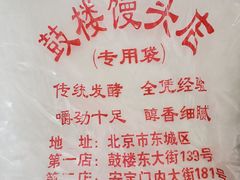 鼓楼馒头店
(专用袋)
传统发酵 全凭经验
嚼劲十足 醇香细腻
地 址:北京市东城区
第一店:鼓楼东大街139号
第二店:安定门内大街181号